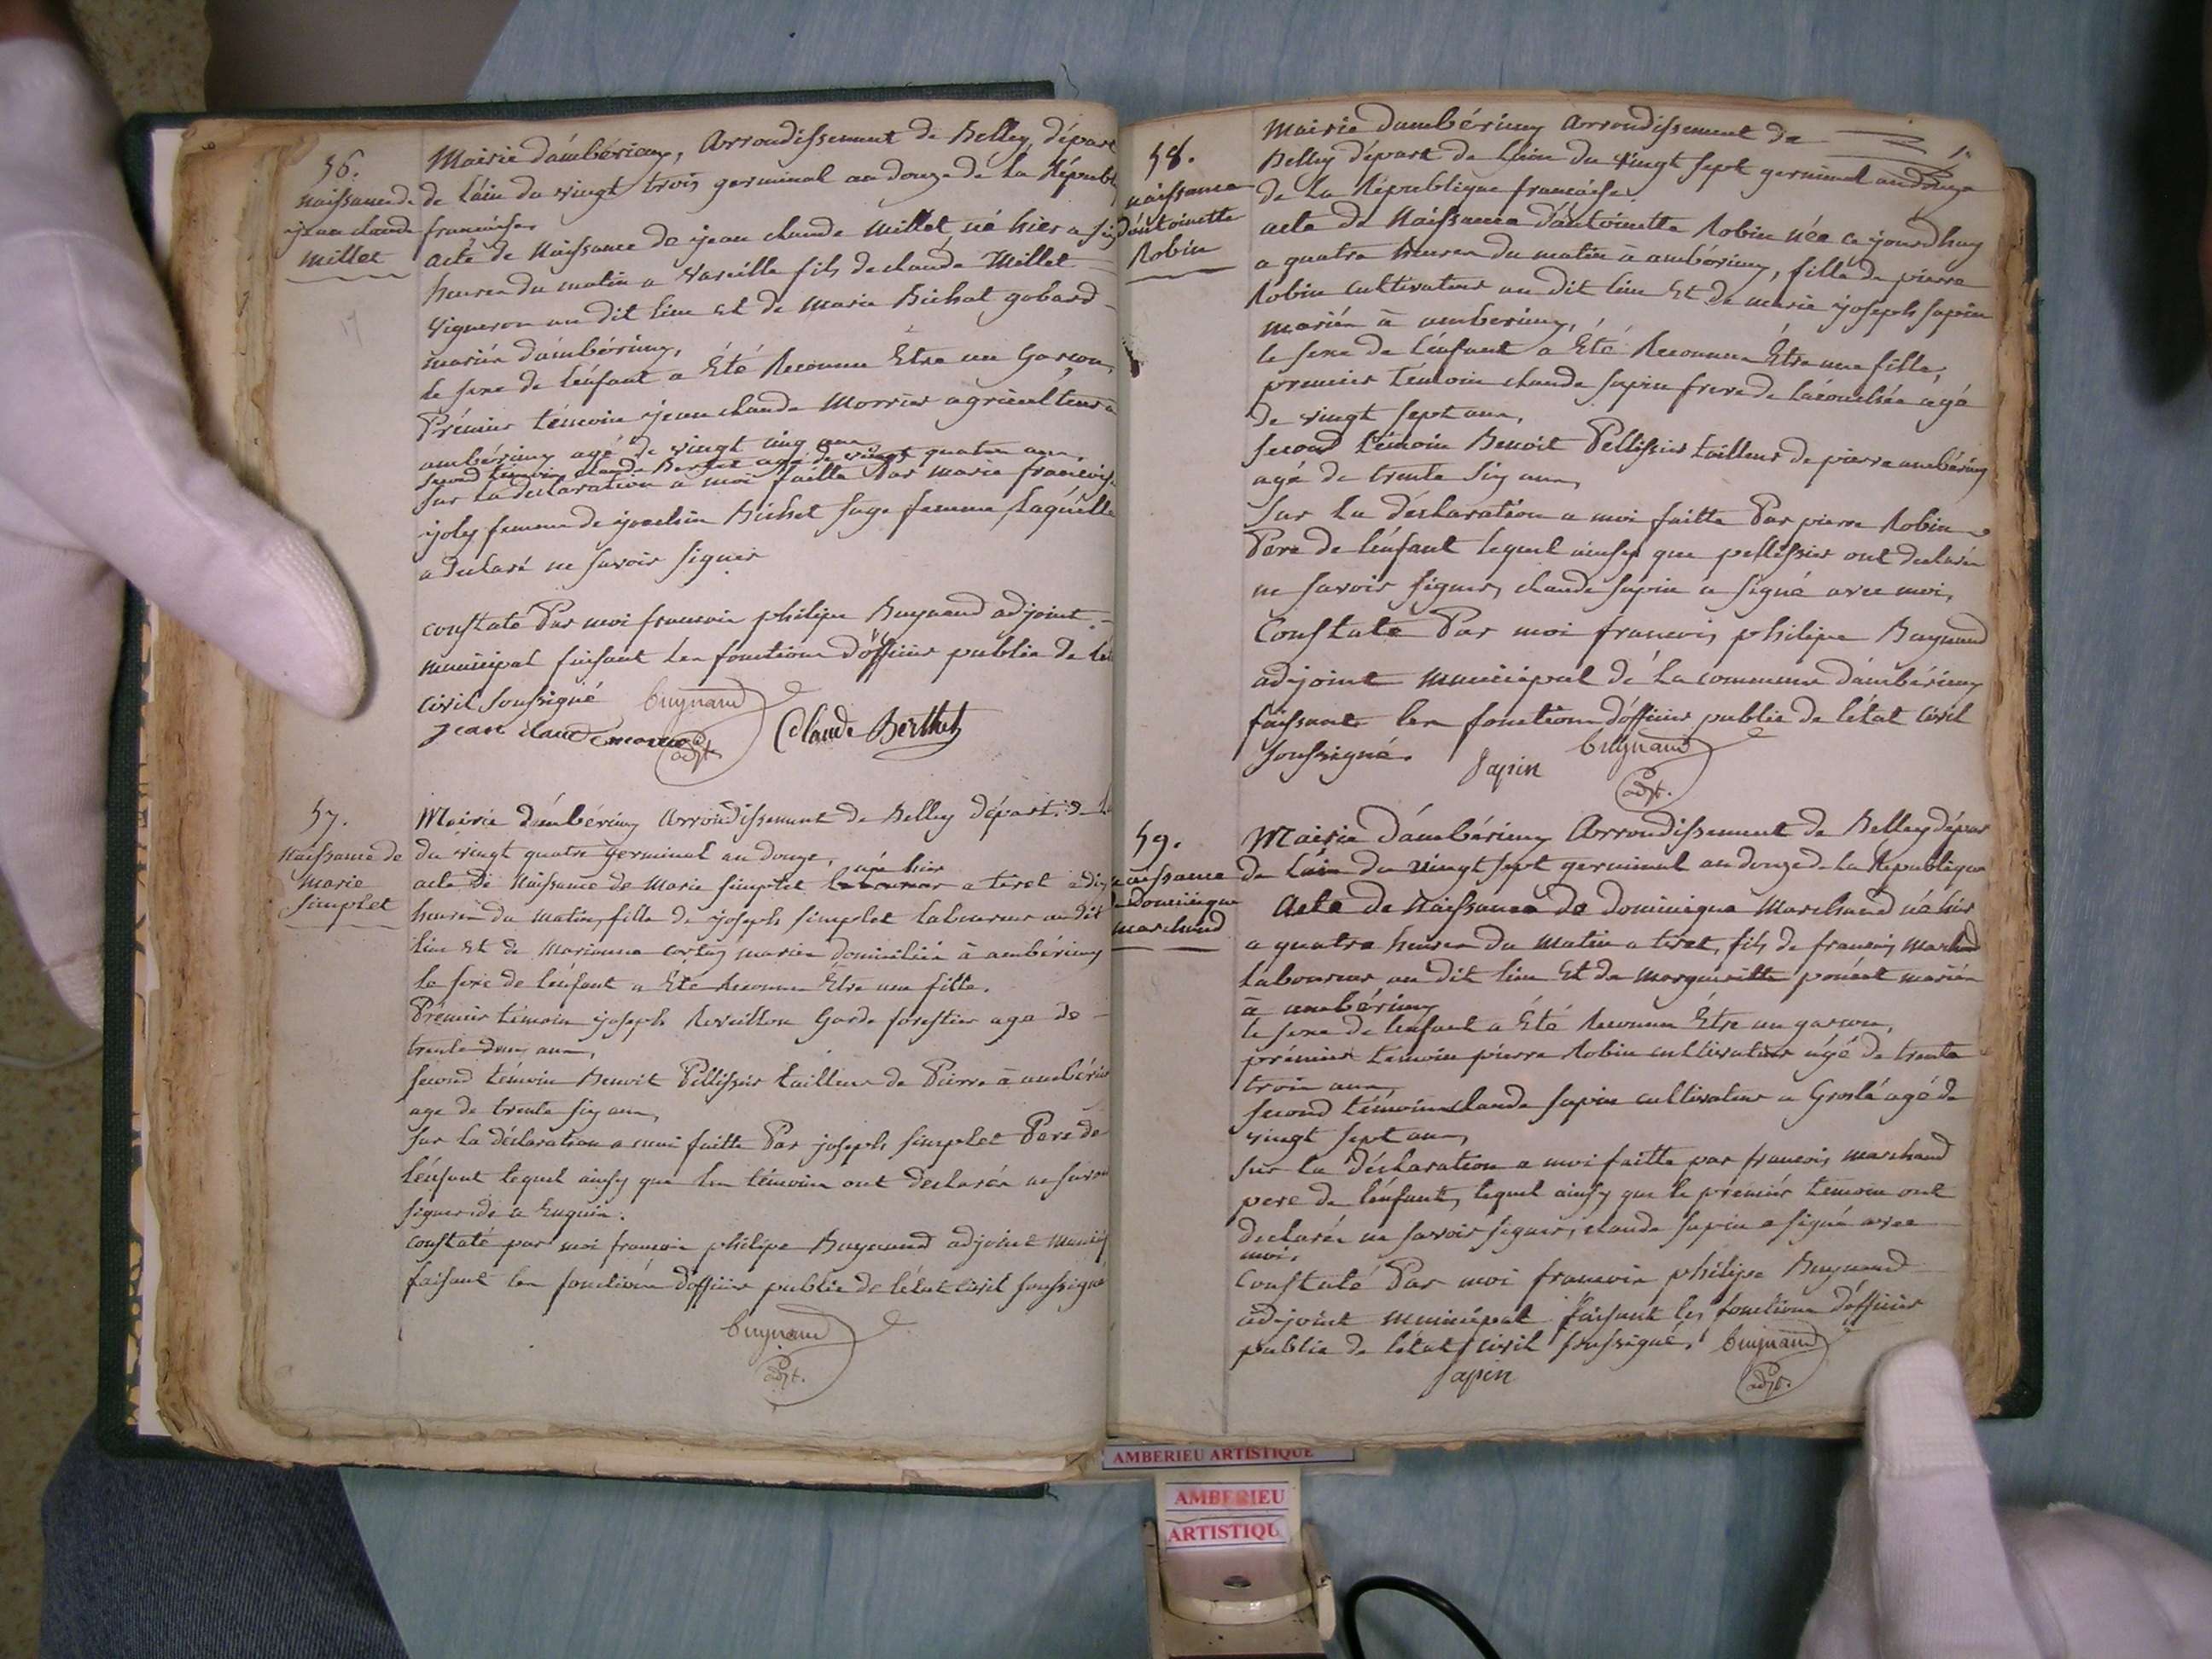 56.
Naissance de
jean claude
millet
Mairie d'ambérieux, Arrondissement de Belley, départ
de l'ain du vingt trois germinal an douze de la Républ
francoise.
acte de Naissance de jean claude Millet né hier a six
heures du matin a Vareille fils de claude Millet
vigneron au dit lieu et de marie Bichat gobard
mariés d'ambérieux,
le sexe de l'enfant a Eté Reconnu Etre un Garcon,
Prémier témoin jean claude Morrier agriculteur a
ambérieux agé de vingt cinq ans,
second témoin claude Berthet agé de vingt quatre ans,
sur la déclaration a moi faitte Par marie francois
joly femme de joachim Bichat sage femme, laquelle
a declaré ne savoir signer
constaté Par moi francois philipe Buynand adjoint
municipal faisant les fonctions d'officier public de l'é
civil soussigné
buynand
adjt.
jean claude morrier
Claude Berthet
57.
Naissance de
Marie
simplet
Mairie d'ambérieux Arrondissement de Belley départ. de l
du vingt quatre germinal an douze,
née hier
acte de Naissance de Marie simplet a tiret a dix
heures du matin, fille de joseph simplet laboureur au dit
lieu et de Marianne mariés domiciliés à ambérieux
le sexe de l'enfant a Eté Reconnu Etre une fille.
Prémier témoin joseph Revillon Garde forestier age de
trente deux ans,
second témoin Benoit Pellissier tailleur de Pierre à ambérieux
age de trente six ans,
sur la déclaration a moi faitte Par joseph simplet Pere de
l'enfant lequel ainsy que les témoins ont declarés ne savoir
signer de a Enquis.
constaté par moi francois philipe Buynand adjoint municip
faisant les fonctions d'officier public de l'état civil soussigné
buynand
adjt.
58.
naissance
d'antoinette
Robin
Mairie d'ambérieux Arrondissement de
Belley départ de l'ain du vingt sept germinal an douze
de la République francoise.
acte de Naissance d'antoinette Robin née ce jourdhuy
a quatre heures du matin à ambérieux, fille de pierre
Robin cultivateur au dit lieu Et de marie joseph sapin
mariés à ambérieux,
le sexe de l'enfant a Eté Reconnu Etre une fille,
premier témoin claude sapin frere de l'acouchée agé
de vingt sept ans,
second témoin Benoit Pellissier tailleur de pierre ambérieux
agé de trente six ans,
Sur la déclaration a moi faitte Par pierre Robin
Pere de l'enfant lequel ainsy que pellissier ont declarés
ne savoir signer, claude sapin a signé avec moi,
Constaté Par moi francois philipe Buynand
adjoint municipal de la commune d'ambérieux
faissant les fonctions d'officier public de l'état civil
soussigné.
Sapin
buynand
adjt.
59.
naissance
de Dominique
marchand
Mairie d'ambérieux Arrondissement de Belley dépar
de l'ain du vingt sept germinal an douze de la République
Acte de Naissance de dominique Marchand né hier
a quatre heures du matin a tiret, fils de francois marchand
laboureur au dit lieu Et de margueritte ponéat mariés
à ambérieux
le sexe de l'enfant a Eté Reconnu Etre un garcon,
prémier témoin pierre Robin cultivateur agé de trente
trois ans,
second témoin claude sapin cultivateur a Groslé agé de
vingt sept ans,
sur la déclaration a moi faitte par francois marchand
pere de l'enfant, lequel ainsy que le prémier témoin ont
declarés ne savoir signer, claude sapin a signé avec
moi,
Constaté Par moi francois philipe Buynand
adjoint municipal faisant les fonctions d'officier
public de l'état civil soussigné.
buynand
adjt.
sapin
AMBERIEU ARTISTIQUE
AMBERIEU
ARTISTIQU